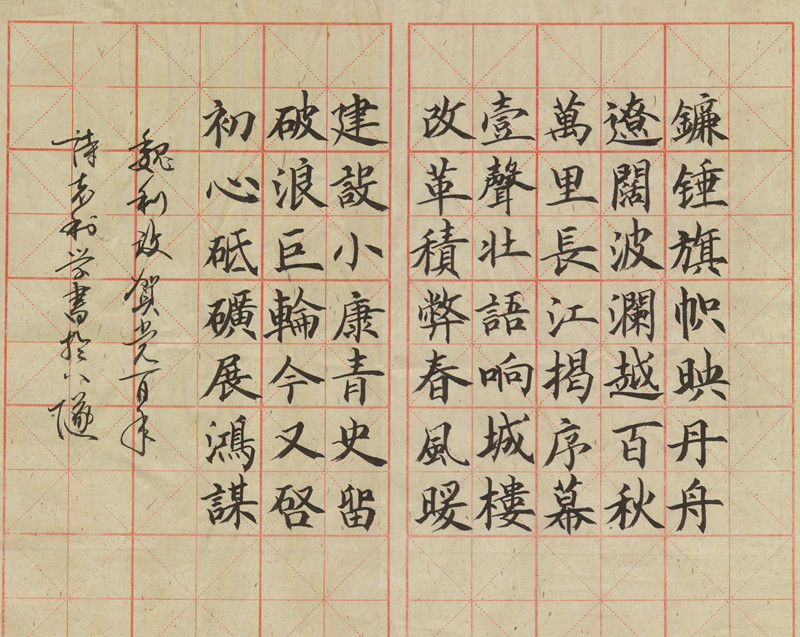 鐮锤旗帜映丹舟
遼闊波瀾越百秋
萬里長江揭序幕
壹聲壮語响城楼
改革積弊春風暖
建設小康青史留
破浪巨輪今又啓
初心砥礪展鴻謀
魏利政賀党百年
詩 利学書於